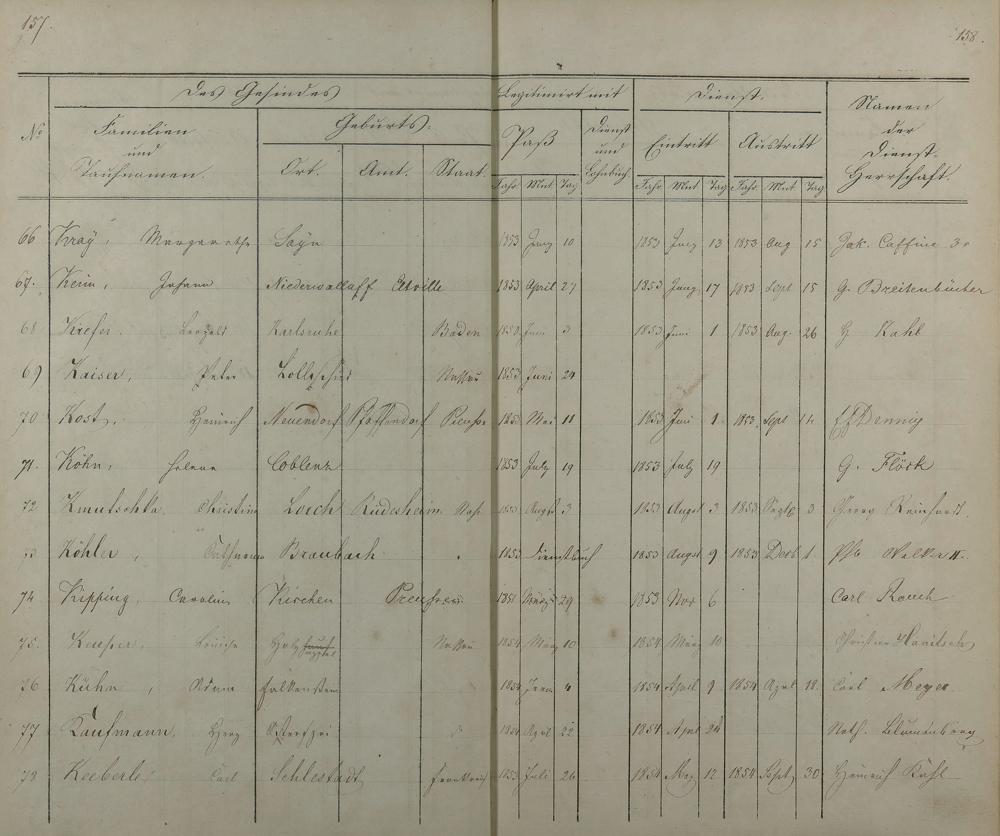 157. 158.
Des Gesindes Legitimirt mit Dienst. Namen der Dienst-Herrschaft.
No Familien und Taufnamen. Geburts- Paß Dienst und Lohnbuch Eintritt Austritt
Ort. Amt. Staat. Jahr Mnt Tag Jahr Mnt Tag Jahr Mnt Tag
66 Kraÿ, Margarethe Sayn 1853 Juny 10 1853 Juny 13 1853 Aug 15 Jak. Caffine
67. Keim, Johann Niederwalluff Eltville 1853 April 27 1853 Juny 17 1853 Sept 15 G. Breitenbücher
68 Kiefer. Leopold Karlsruhe Baden 1853 Juni 3 1853 Juni 1 1853 Aug. 26 G Kahl
69 Kaiser, Peter Nassau 1853 Juni 24
70 Kost, Heinrich Neuendorf Pfaffendorf Preuße 1853 Mai 11 1853 Juni 1 1853 Sept 14
71. Köhn, Helena Coblenz 1853 July 19 1853 July 19 G. Flöck
72 Kmutschka, Christine Lorch Rüdesheim Naß 1853 August 3 1853 August 3 1853 Septb 3 Georg Reinhardt.
73 Köhler, Catharina Braubach 1853 Dienstbuch 1853 August 9 1853 Decb 1. Phb Welker II.
74 Kipping, Caroline Kirchen Preußen 1851 März 29 1853 Nov 6 Carl Rauch
75. Keuper, Louise Holzhappel Nassau 1854 März 10 1854 März 10 Christian
76 Kühn, Adam Falkenstein 1854 4 1854 April 9 1854 April 18. Carl Meyer
77 Kaufmann, Herz 1854 April 22 1854 April 24 Nath. Blumenberg
78 Keeberle, Carl Schlestadt Frankreich 1853 Juli 26 1854 May 12 1854 Sept 30 Heinrich Kahl